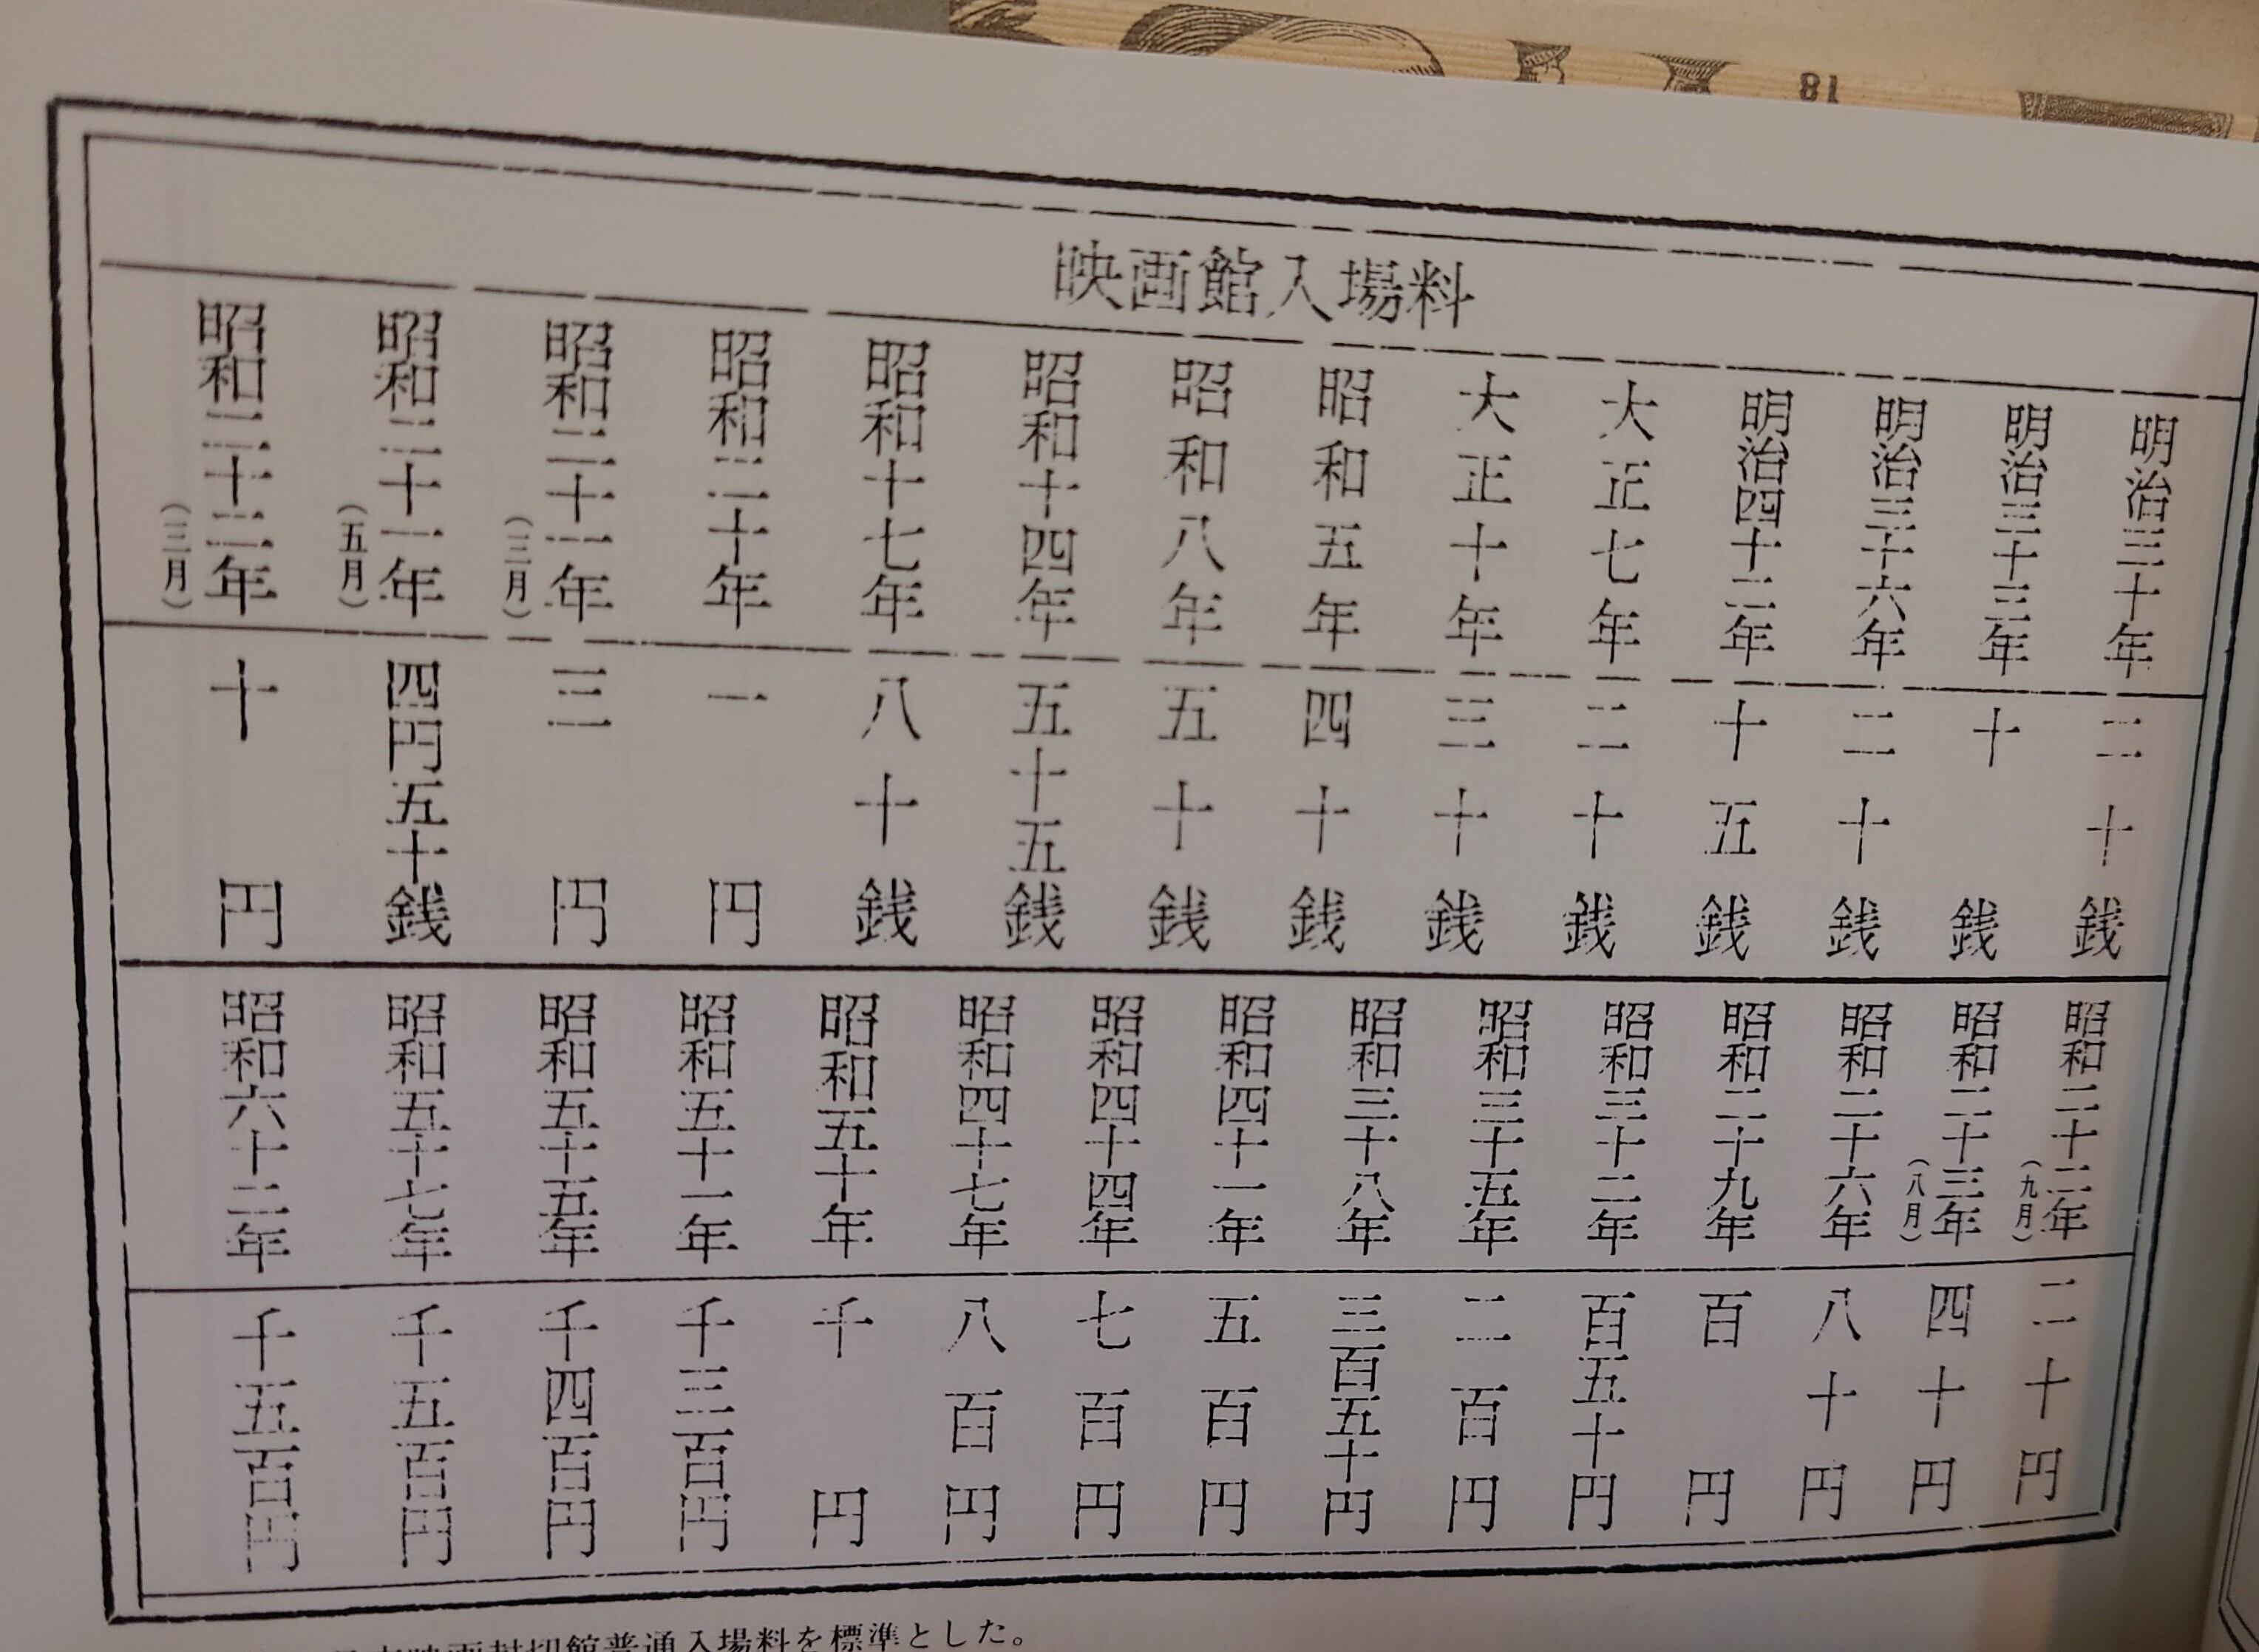 18
映画館入場料
明治三十年 二十銭
明治三十三年 十銭
明治三十六年 二十銭
明治四十二年 十五銭
大正七年 二十銭
大正十年 三十銭
昭和五年 四十銭
昭和八年 五十銭
昭和十四年 五十五銭
昭和十七年 八十銭
昭和二十年 一円
昭和二十一年（三月） 三円
昭和二十一年（五月） 四円五十銭
昭和二十二年（三月） 十円
昭和二十二年（九月） 二十円
昭和二十三年（八月） 四十円
昭和二十六年 八十円
昭和二十九年 百円
昭和三十二年 百五十円
昭和三十五年 二百円
昭和三十八年 三百五十円
昭和四十一年 五百円
昭和四十四年 七百円
昭和四十七年 八百円
昭和五十年 千円
昭和五十一年 千三百円
昭和五十五年 千四百円
昭和五十七年 千五百円
昭和六十二年 千五百円
映画封切館普通入場料を標準とした。